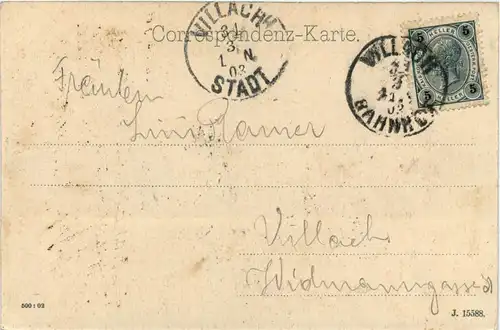 Correspondenz-Karte.
VILLACH
STADT
VILLACH
BAHNHOF
5 5
HELLER
5 5
Fräulein
Villach
Widmanngasse
500 : 02
J. 15588.